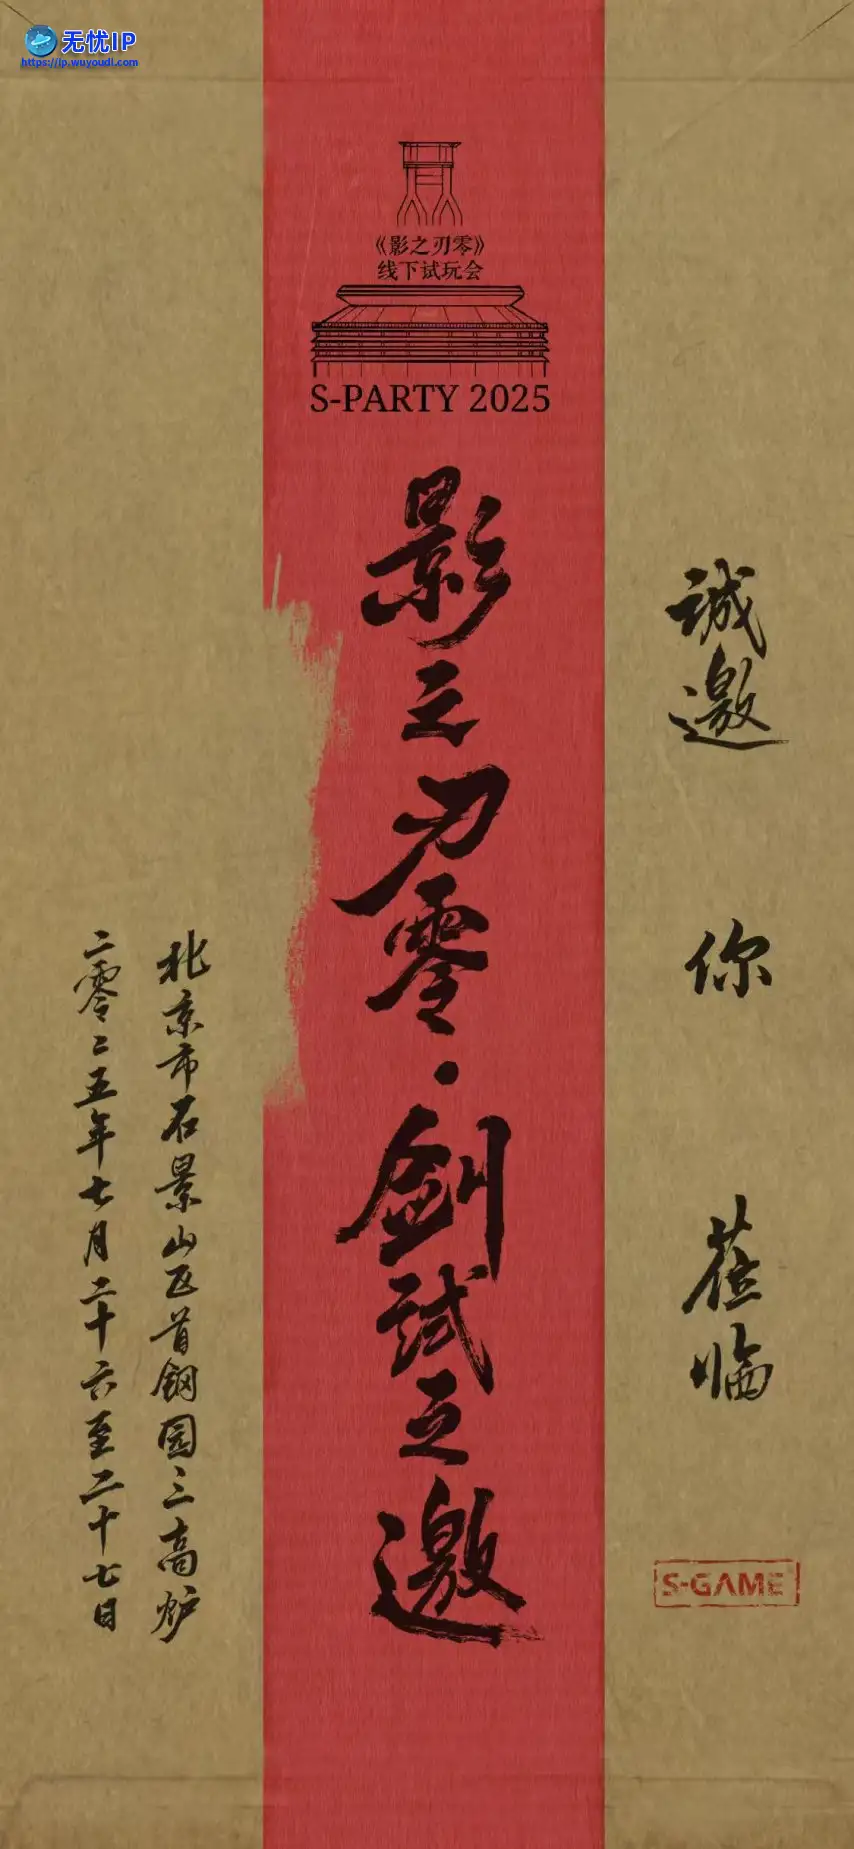 无忧IP
https://ip.wuyoudl.com
《影之刃零》
线下试玩会
S-PARTY 2025
影之刃零·劍試之邀
誠邀 你 莅临
北京市石景山区首钢园三高炉
二零二五年七月二十六至二十七日
S-GAME